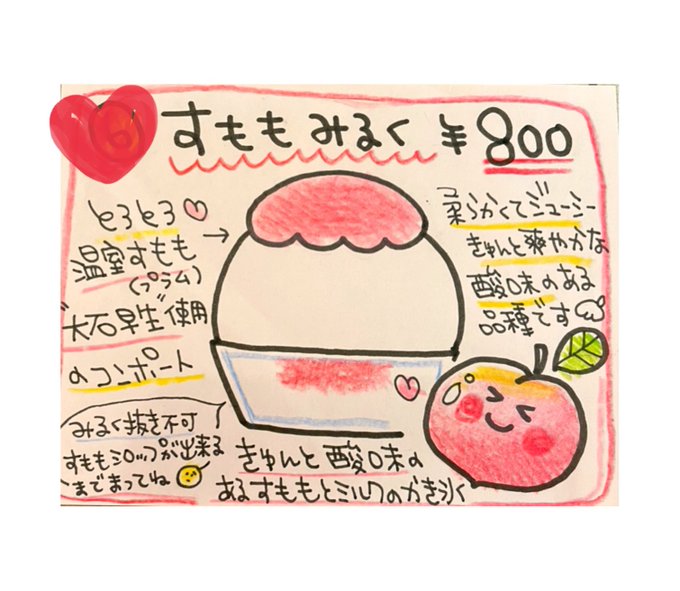 すももみるく ¥800
とろとろ
温室すもも
(プラム)
"大石早生"使用
のコンポート
柔らかくてジューシー
きゅんと爽やかな
酸味のある
品種です
みるく抜き不可
すももシロップが出来る
までまってね
きゅんと酸味の
あるすももとミルクのかき氷